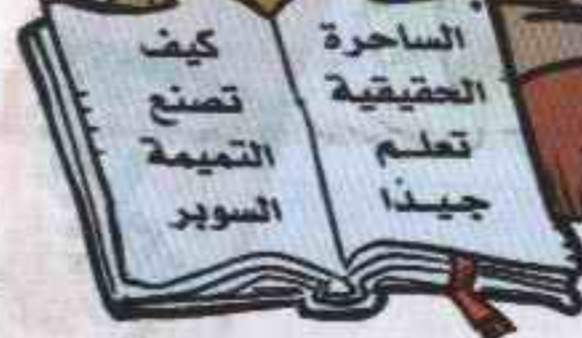 الساحرة
الحقيقية
تعلم
جيدًا
كيف
تصنع
التميمة
السوبر